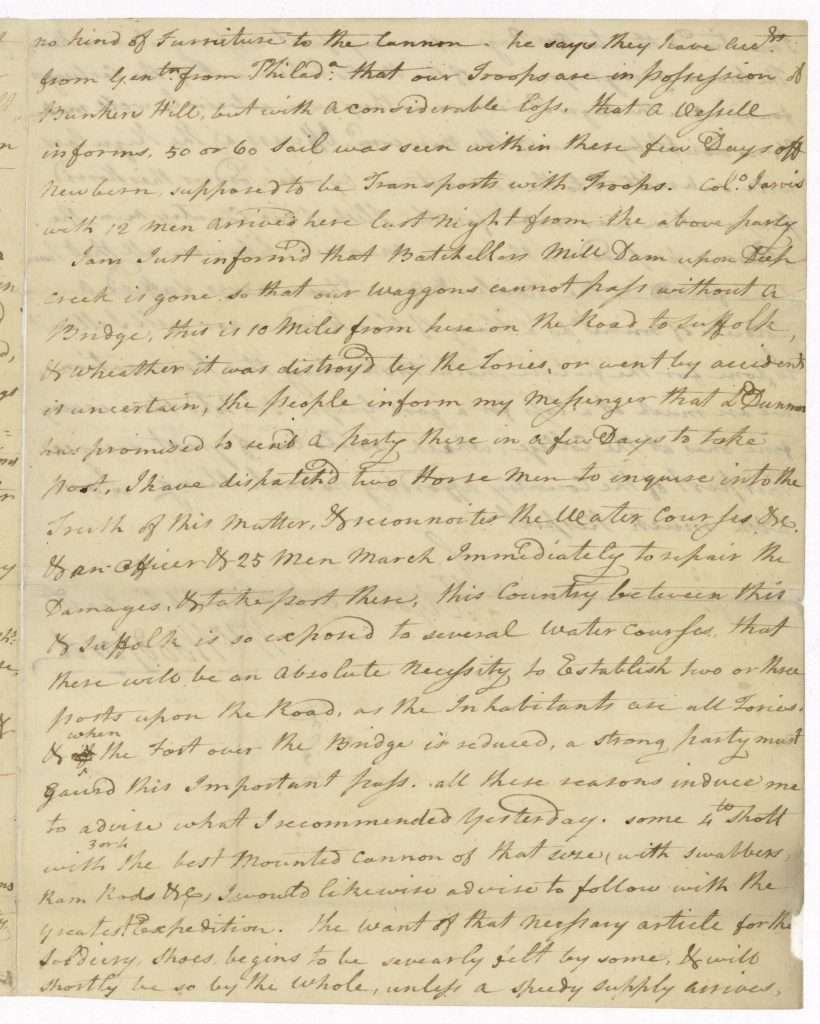 no kind of Furniture to the Cannon. he says they have accts
from Gentn from Philada. that our Troops are in possession of
Bunkers Hill, but with a considerable loss. that a Vessell
informs, 50 or 60 Sail was seen within these few Days off
Newbern, supposed to be Transports with Troops. Colo. Jarvis
with 12 men arrived here last night from the above party
I am Just inform'd that Batchellors Mill Dam upon Deep
creek is gone so that our Waggons cannot pass without a
Bridge, this is 10 Miles from here on the Road to Suffolk,
& wheather it was distroy'd by the Tories, or went by accident
is uncertain, the people inform my Messenger that Ld Dunmore
has promised to send a party there in a few Days to take
post, I have dispatch'd two Horse Men to inquire into the
Truth of this Matter, & reconnoites the Water Courses &c.
& an officer & 25 Men March Immediately to repair the
Damages, & take post there, this Country between this
& Suffolk is so exposed to several Water Courses, that
there will be an Absolute Necessity to Establish two or three
posts upon the Road, as the Inhabitants are all Tories.
& when the Fort over the Bridge is reduced, a strong party must
gaurd this Important pass. all these reasons induce me
to advise what I recommended Yesterday. some 4 lb Shott
with 3 or 4 the best Mounted Cannon of that size, with Swabbers,
Ram Rods &c, I would likewise advise to follow with the
greatest Expedition. the want of that necssary article for the
Soldiery, Shoes, begins to be sevearly felt by some, & will
shortly be so by the whole, unless a speedy supply arrives,